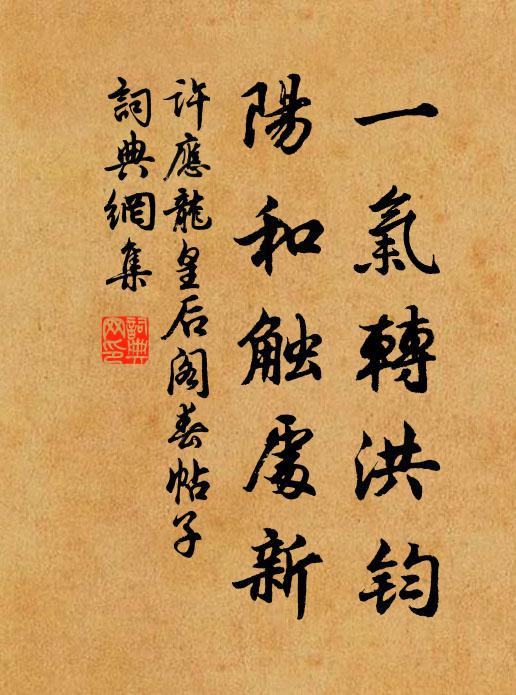 一氣轉洪钧
陽和触處新
許應龍皇后阁春帖子
詞典網集
詞典网印